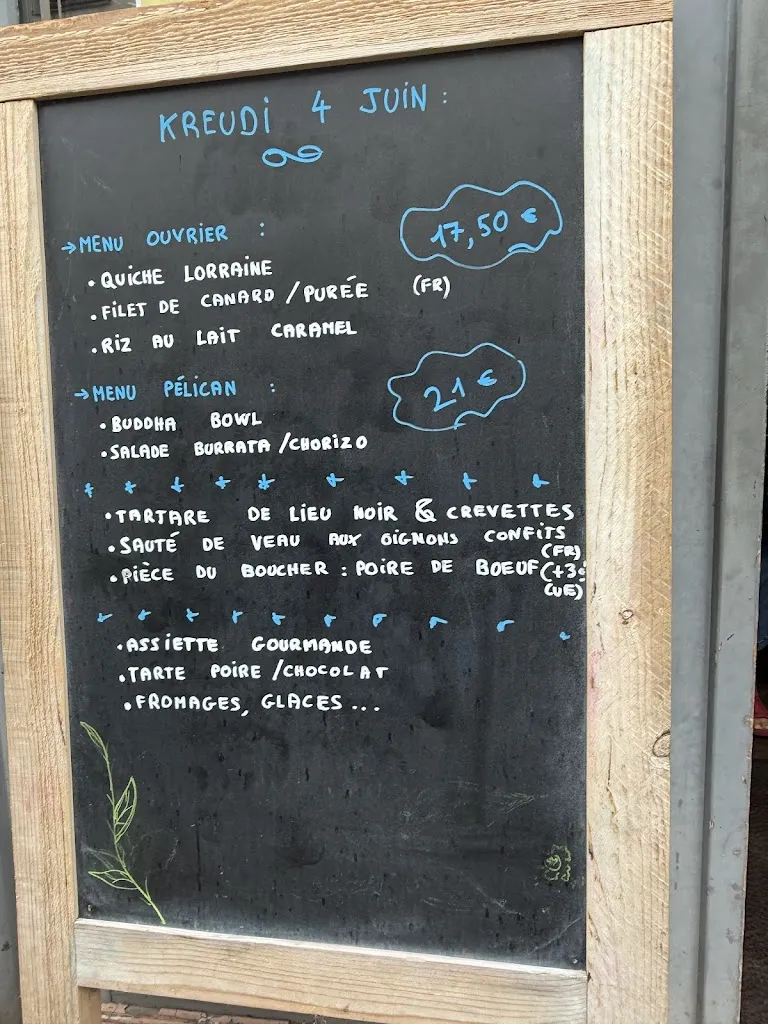 KREUDI 4 JUIN :
→ MENU OUVRIER : 17,50 €
• QUICHE LORRAINE
• FILET DE CANARD / PURÉE (FR)
• RIZ AU LAIT CARAMEL
→ MENU PÉLICAN : 21 €
• BUDDHA BOWL
• SALADE BURRATA / CHORIZO
• TARTARE DE LIEU NOIR & CREVETTES
• SAUTÉ DE VEAU AUX OIGNONS CONFITS (FR)
• PIÈCE DU BOUCHER : POIRE DE BOEUF (+3€
(UE)
• ASSIETTE GOURMANDE
• TARTE POIRE / CHOCOLAT
• FROMAGES, GLACES ...